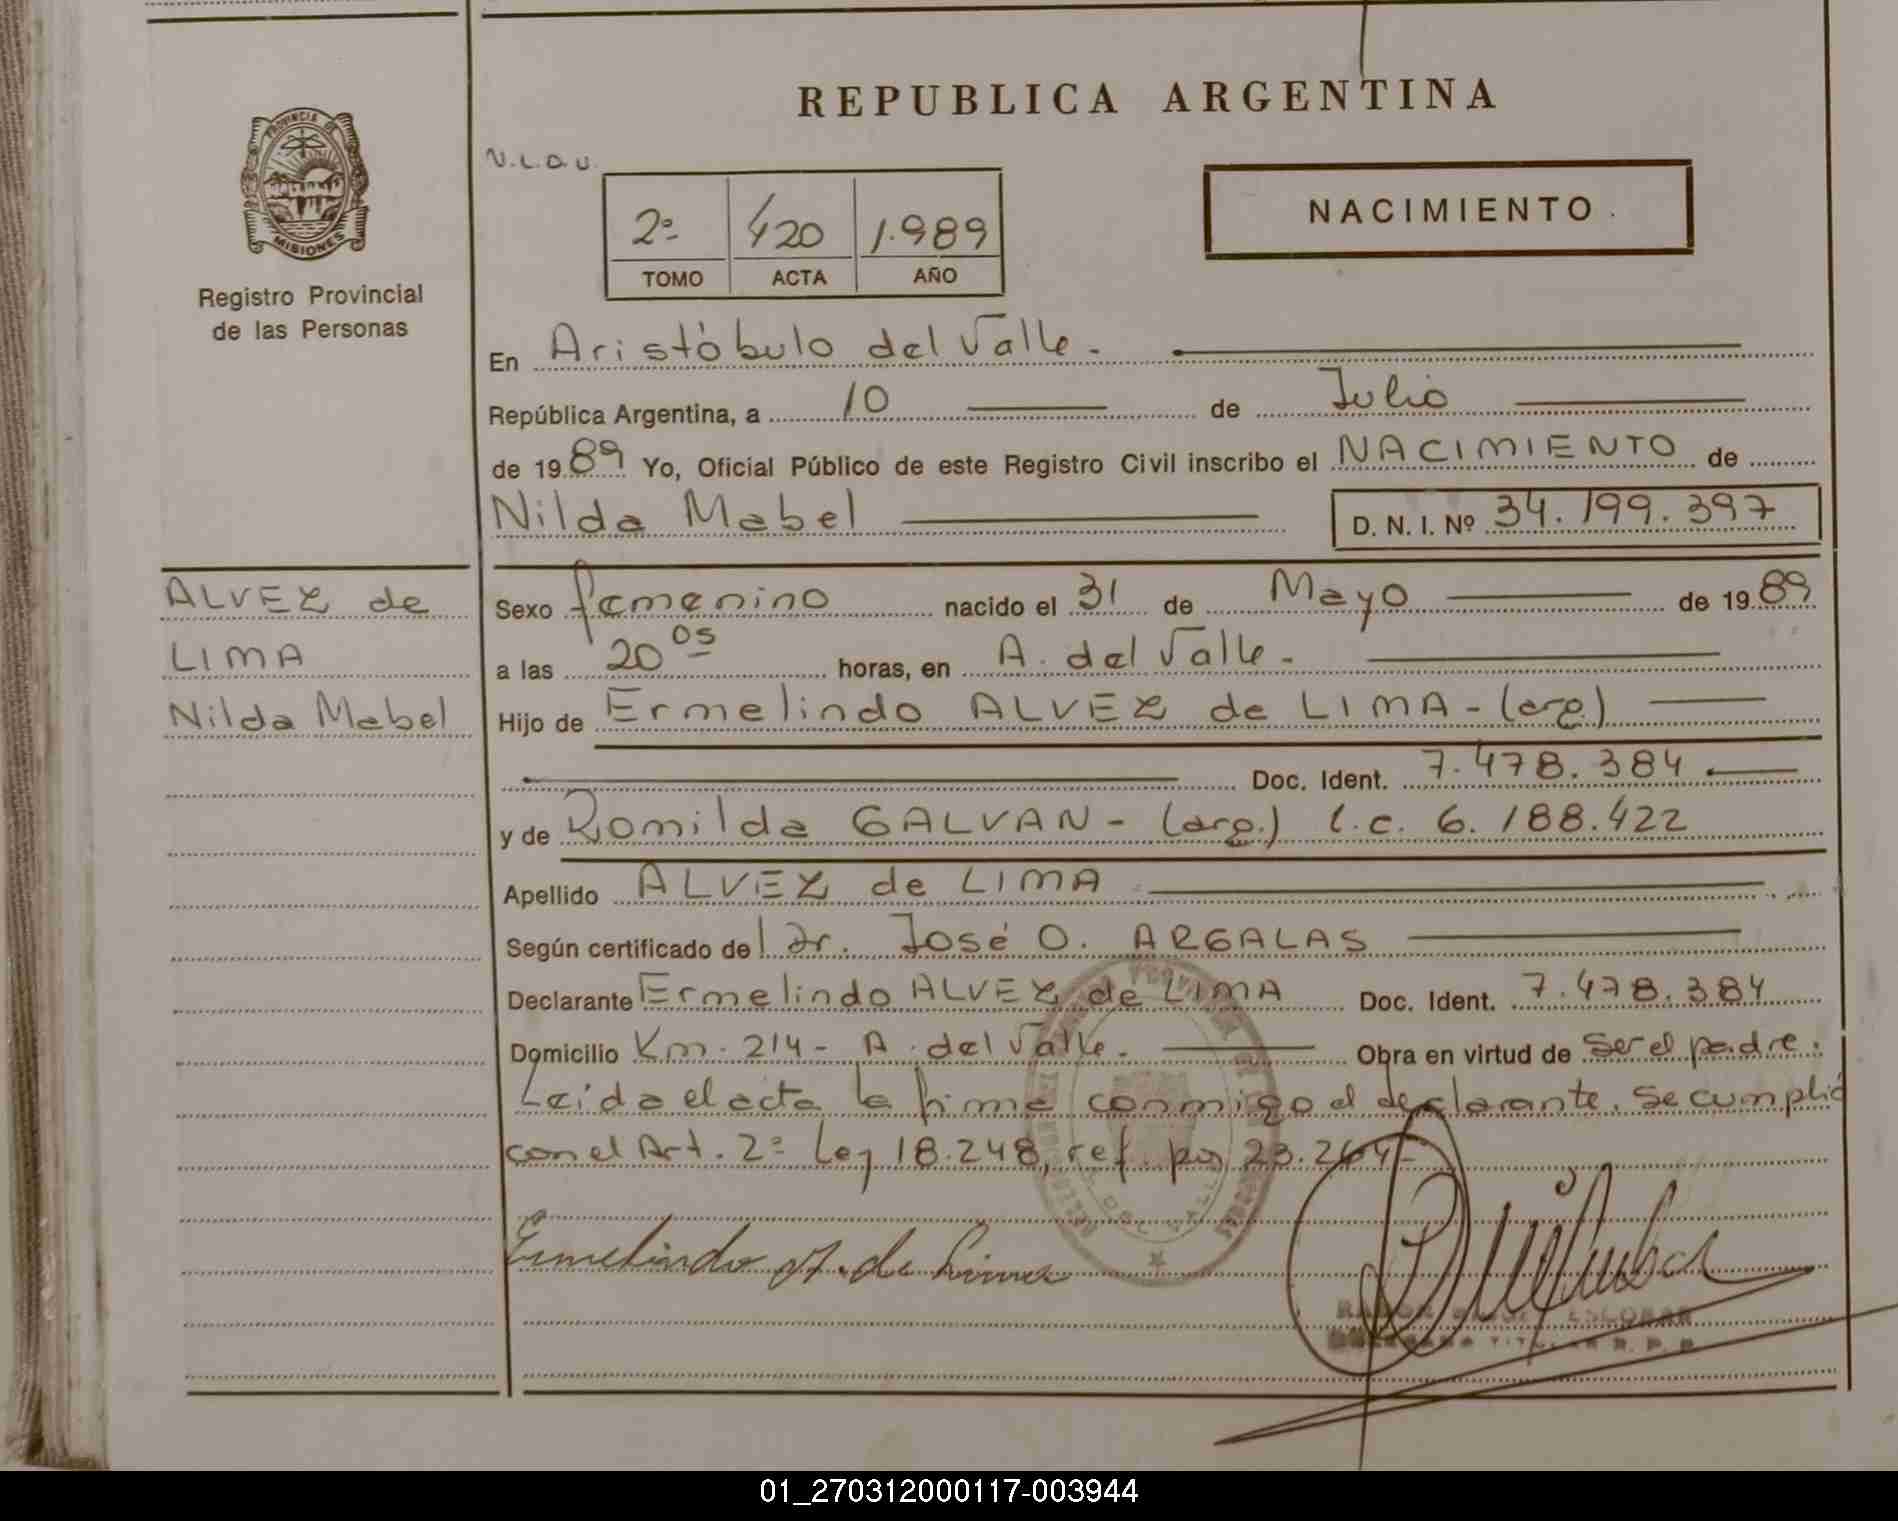 REPUBLICA ARGENTINA
PROVINCIA DE
MISIONES
Registro Provincial
de las Personas
N.L.O.U.
2º 420 1.989
TOMO ACTA AÑO
NACIMIENTO
En Aristóbulo del Valle.
República Argentina, a 10 de Julio
de 1989 Yo, Oficial Público de este Registro Civil inscribo el NACIMIENTO de
Nilda Mabel D. N. I. Nº 34.199.397
ALVEZ de
LIMA
Nilda Mabel
Sexo femenino nacido el 31 de Mayo de 1989
a las 20 05 horas, en A. del Valle.
Hijo de Ermelindo ALVEZ de LIMA - (arg)
Doc. Ident. 7.478.384
y de Romilda GALVAN - (arg.) l.c. 6.188.422
Apellido ALVEZ de LIMA
Según certificado del Dr. José O. ARGALAS
Declarante Ermelindo ALVEZ de LIMA Doc. Ident. 7.478.384
Domicilio Km. 214 - A. del Valle. Obra en virtud de ser el padre.
Leída el acta la firma conmigo el declarante. Se cumplió
con el Art. 2º Ley 18.248, ref. por 23.264-
DEL VALLE
Ermelindo A. de Lima
ESCOBAR
TITULAR R. P. P.
01_270312000117-003944